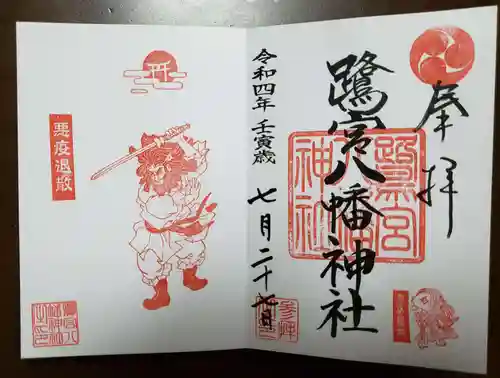 奉拝
鷺宮八幡神社
令和四年 壬寅歳 七月二十七日
悪疫退散
鷺宮八幡神社
参拝